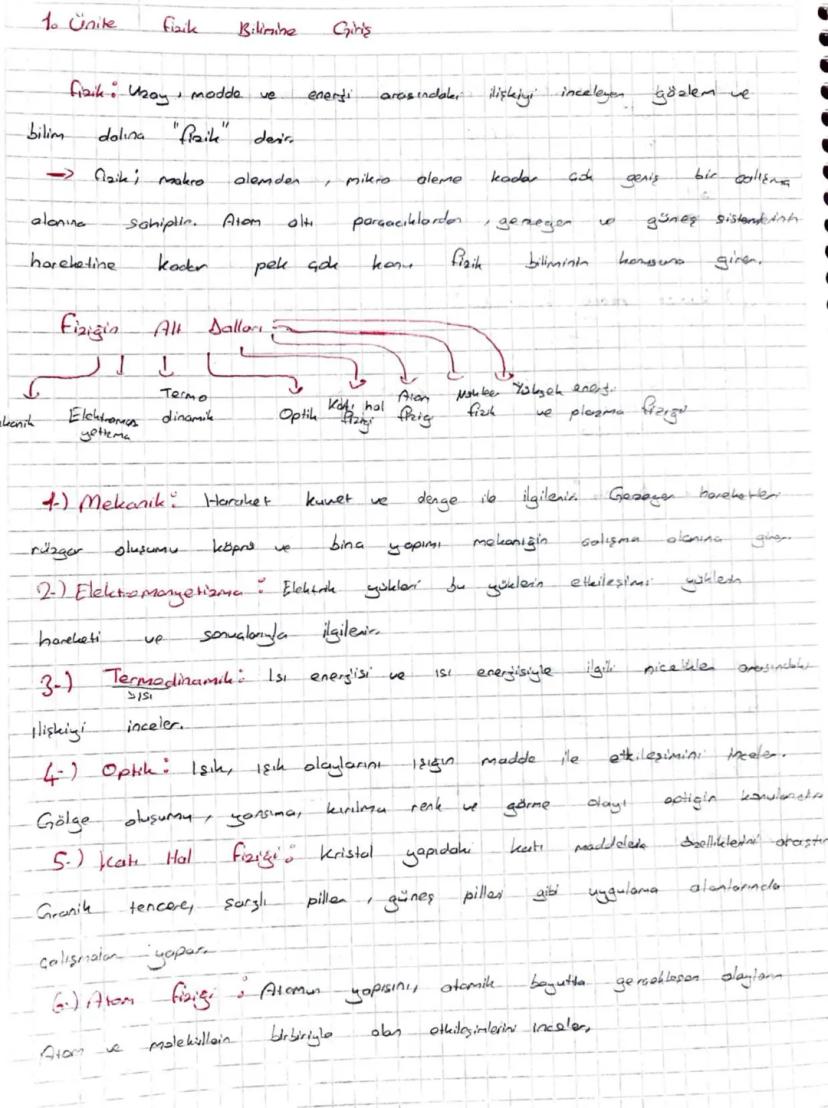 1. Ünite Fizik Bilimine Giriş
Fizik: Uzay, madde ve enerji arasındaki ilişkiyi inceleyen gözlem ve
bilim dalına "fizik" denir.
→ Fizik; makro alemden, mikro aleme kadar çok geniş bir çalışma
alanına sahiptir. Atom altı parçacıklardan, gezegen ve güneş sistemlerinin
hareketine kadar pek çok konu fizik biliminin konusuna girer.
Fiziğin Alt Dalları
Termo Katı hal Atom Nükleer Yüksek enerji
ekanik Elektroman dinamik Optik fiziği fiziği fizik ve plazma fiziği
yetizma
1-) Mekanik: Hareket kuvvet ve denge ile ilgilenir. Gezegen hareketleri
rüzgar oluşumu köprü ve bina yapımı mekaniğin çalışma alanına girer.
2-) Elektromanyetizma: Elektrik yükleri bu yüklerin etkileşimi yüklerin
hareketi ve sonuçlarıyla ilgilenir.
3-) Termodinamik: Isı enerjisi ve ısı enerjisiyle ilgili nicelikler arasındaki
↳ısı
ilişkiyi inceler.
4-) Optik: Işık, ışık olaylarını ışığın madde ile etkileşimini inceler.
Gölge oluşumu, yansıma, kırılma renk ve görme olayı optiğin konularıdır
5-) Katı Hal Fiziği: Kristal yapıdaki katı maddelerin özelliklerini araştır
Granik tencere, şarjlı piller, güneş pilleri gibi uygulama alanlarında
çalışmalar yapar.
6-) Atom fiziği: Atomun yapısını, atomik boyutta gerçekleşen olayların
Atom ve moleküllerin birbiriyle olan etkileşimlerini inceler.